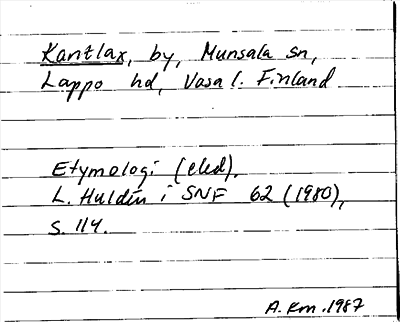 Kantlax, by, Munsala sn,
Lappo hd, Vasa l. Finland
Etymologi (eled).
L. Huldén i SNF 62 (1980),
s. 114.
A. Km. 1987